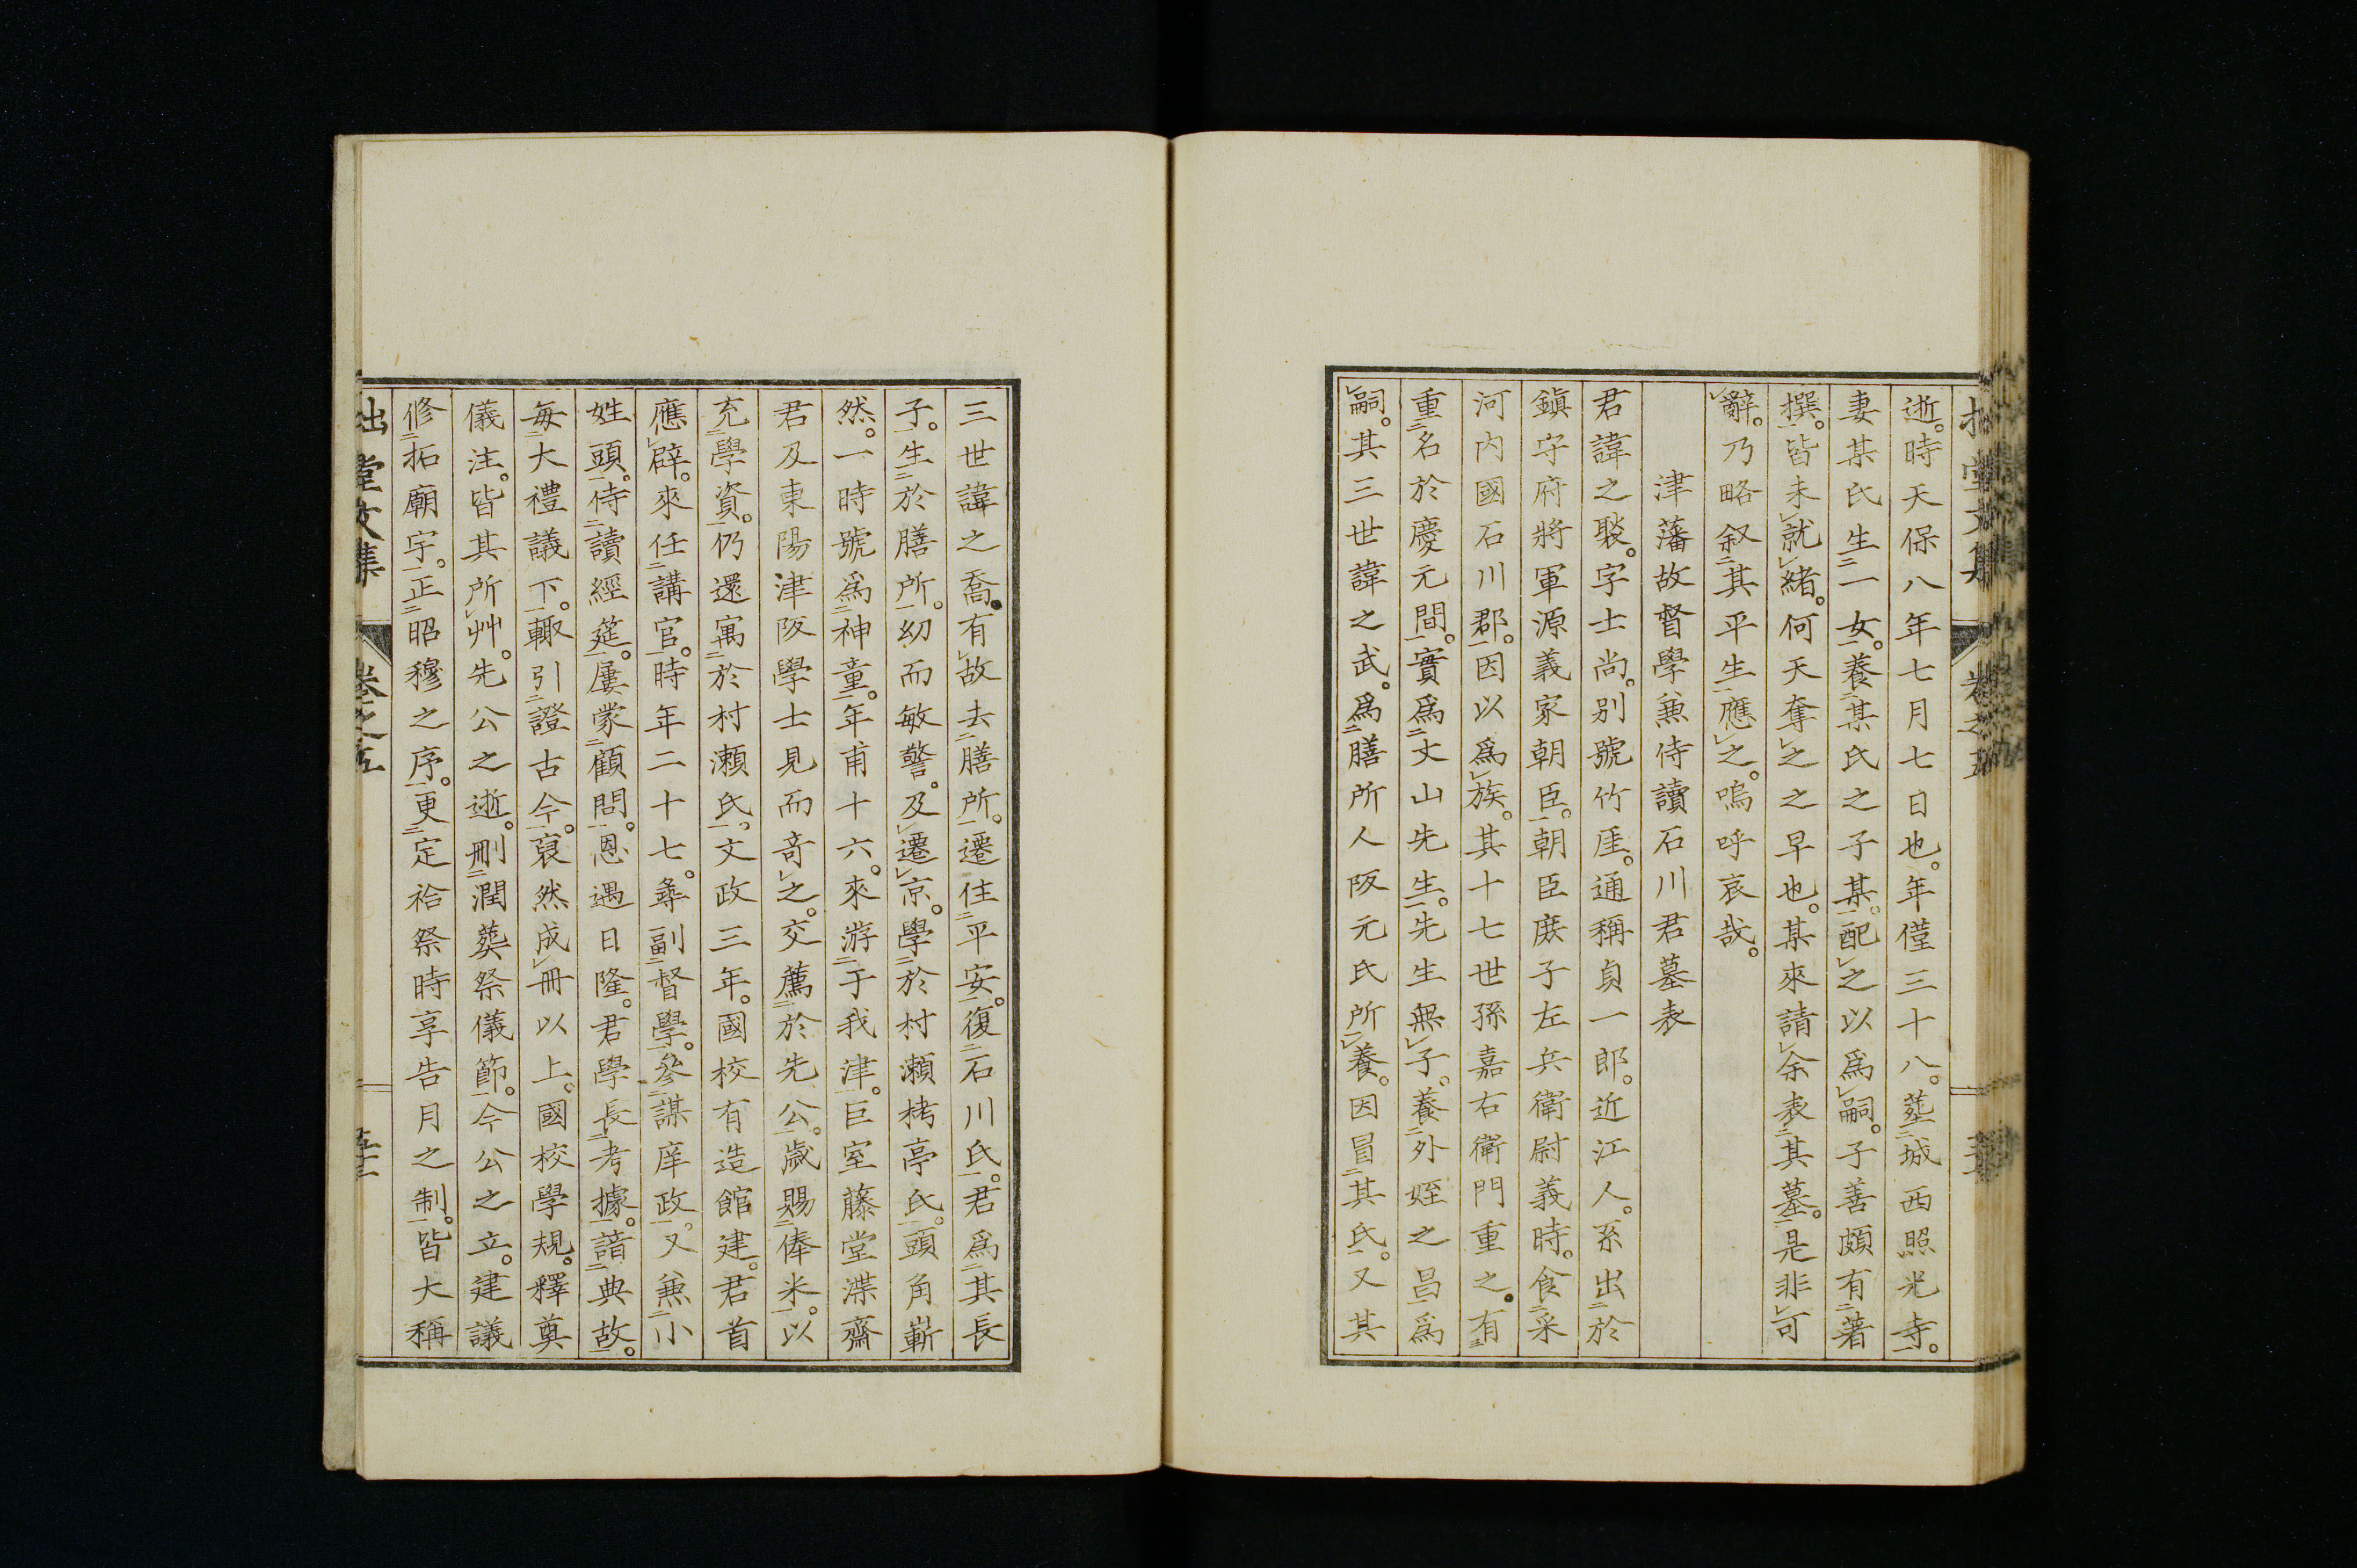 逝。時天保八年七月七日也。年僅三十八。葬城西照光寺。
妻某氏生一女。養某氏之子某。配之以爲嗣。子善頗有著
撰。皆未就緒。何天奪之之早也。某來請余表其墓。是非可
辭。乃略叙其平生應之。嗚呼哀哉。
津藩故督學兼侍讀石川君墓表
君諱之褧。字士尚。別號竹厓。通稱貞一郎。近江人。系出於
鎮守府將軍源義家朝臣。朝臣庶子左兵衛尉義時。食采
河内國石川郡。因以爲族。其十七世孫嘉右衛門重之。有
重名於慶元間。實爲丈山先生。先生無子。養外姪之昌爲
嗣。其三世諱之武。爲膳所人阪元氏所養。因冒其氏。又其
三世諱之喬。有故去膳所。遷住平安。復石川氏。君爲其長
子。生於膳所。幼而敏警。及遷京。學於村瀬栲亭氏。頭角嶄
然。一時號爲神童。年甫十六。來游于我津。巨室藤堂渫齋
君及東陽津阪學士見而奇之。交薦於先公。歲賜俸米。以
充學資。仍還寓於村瀬氏。文政三年。國校有造館建。君首
應辟。來任講官。時年二十七。尋副督學。參謀庠政。又兼小
姓頭。侍讀經筵。屢蒙顧問。恩遇日隆。君學長考據。諳典故。
每大禮議下。輙引證古今。裒然成冊以上。國校學規。釋奠
儀注。皆其所艸。先公之逝。刪潤葬祭儀節。今公之立。建議
修拓廟宇。正昭穆之序。更定祫祭時享告月之制。皆大稱
拙堂文集
卷之五